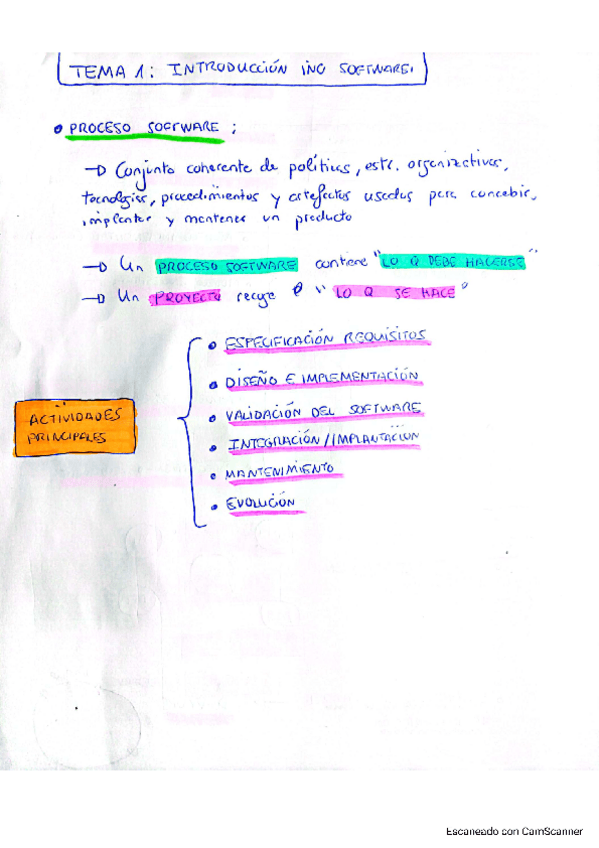 TEMA 1: INTRODUCCIÓN ING SOFTWARE.
PROCESO SOFTWARE:
Conjunto coherente de políticas, estr. organizativas,
tecnologías, procedimientos y artefactos usados para concebir,
implantar y mantener un producto
Un PROCESO SOFTWARE contiene "LO Q DEBE HACERSE"
Un PROYECTO recoge "LO Q SE HACE"
ACTIVIDADES
PRINCIPALES
ESPECIFICACIÓN REQUISITOS
DISEÑO E IMPLEMENTACIÓN
VALIDACIÓN DEL SOFTWARE
INTEGRACIÓN//IMPLANTACIÓN
MANTENIMIENTO
EVOLUCIÓN
Escaneado con CamScanner